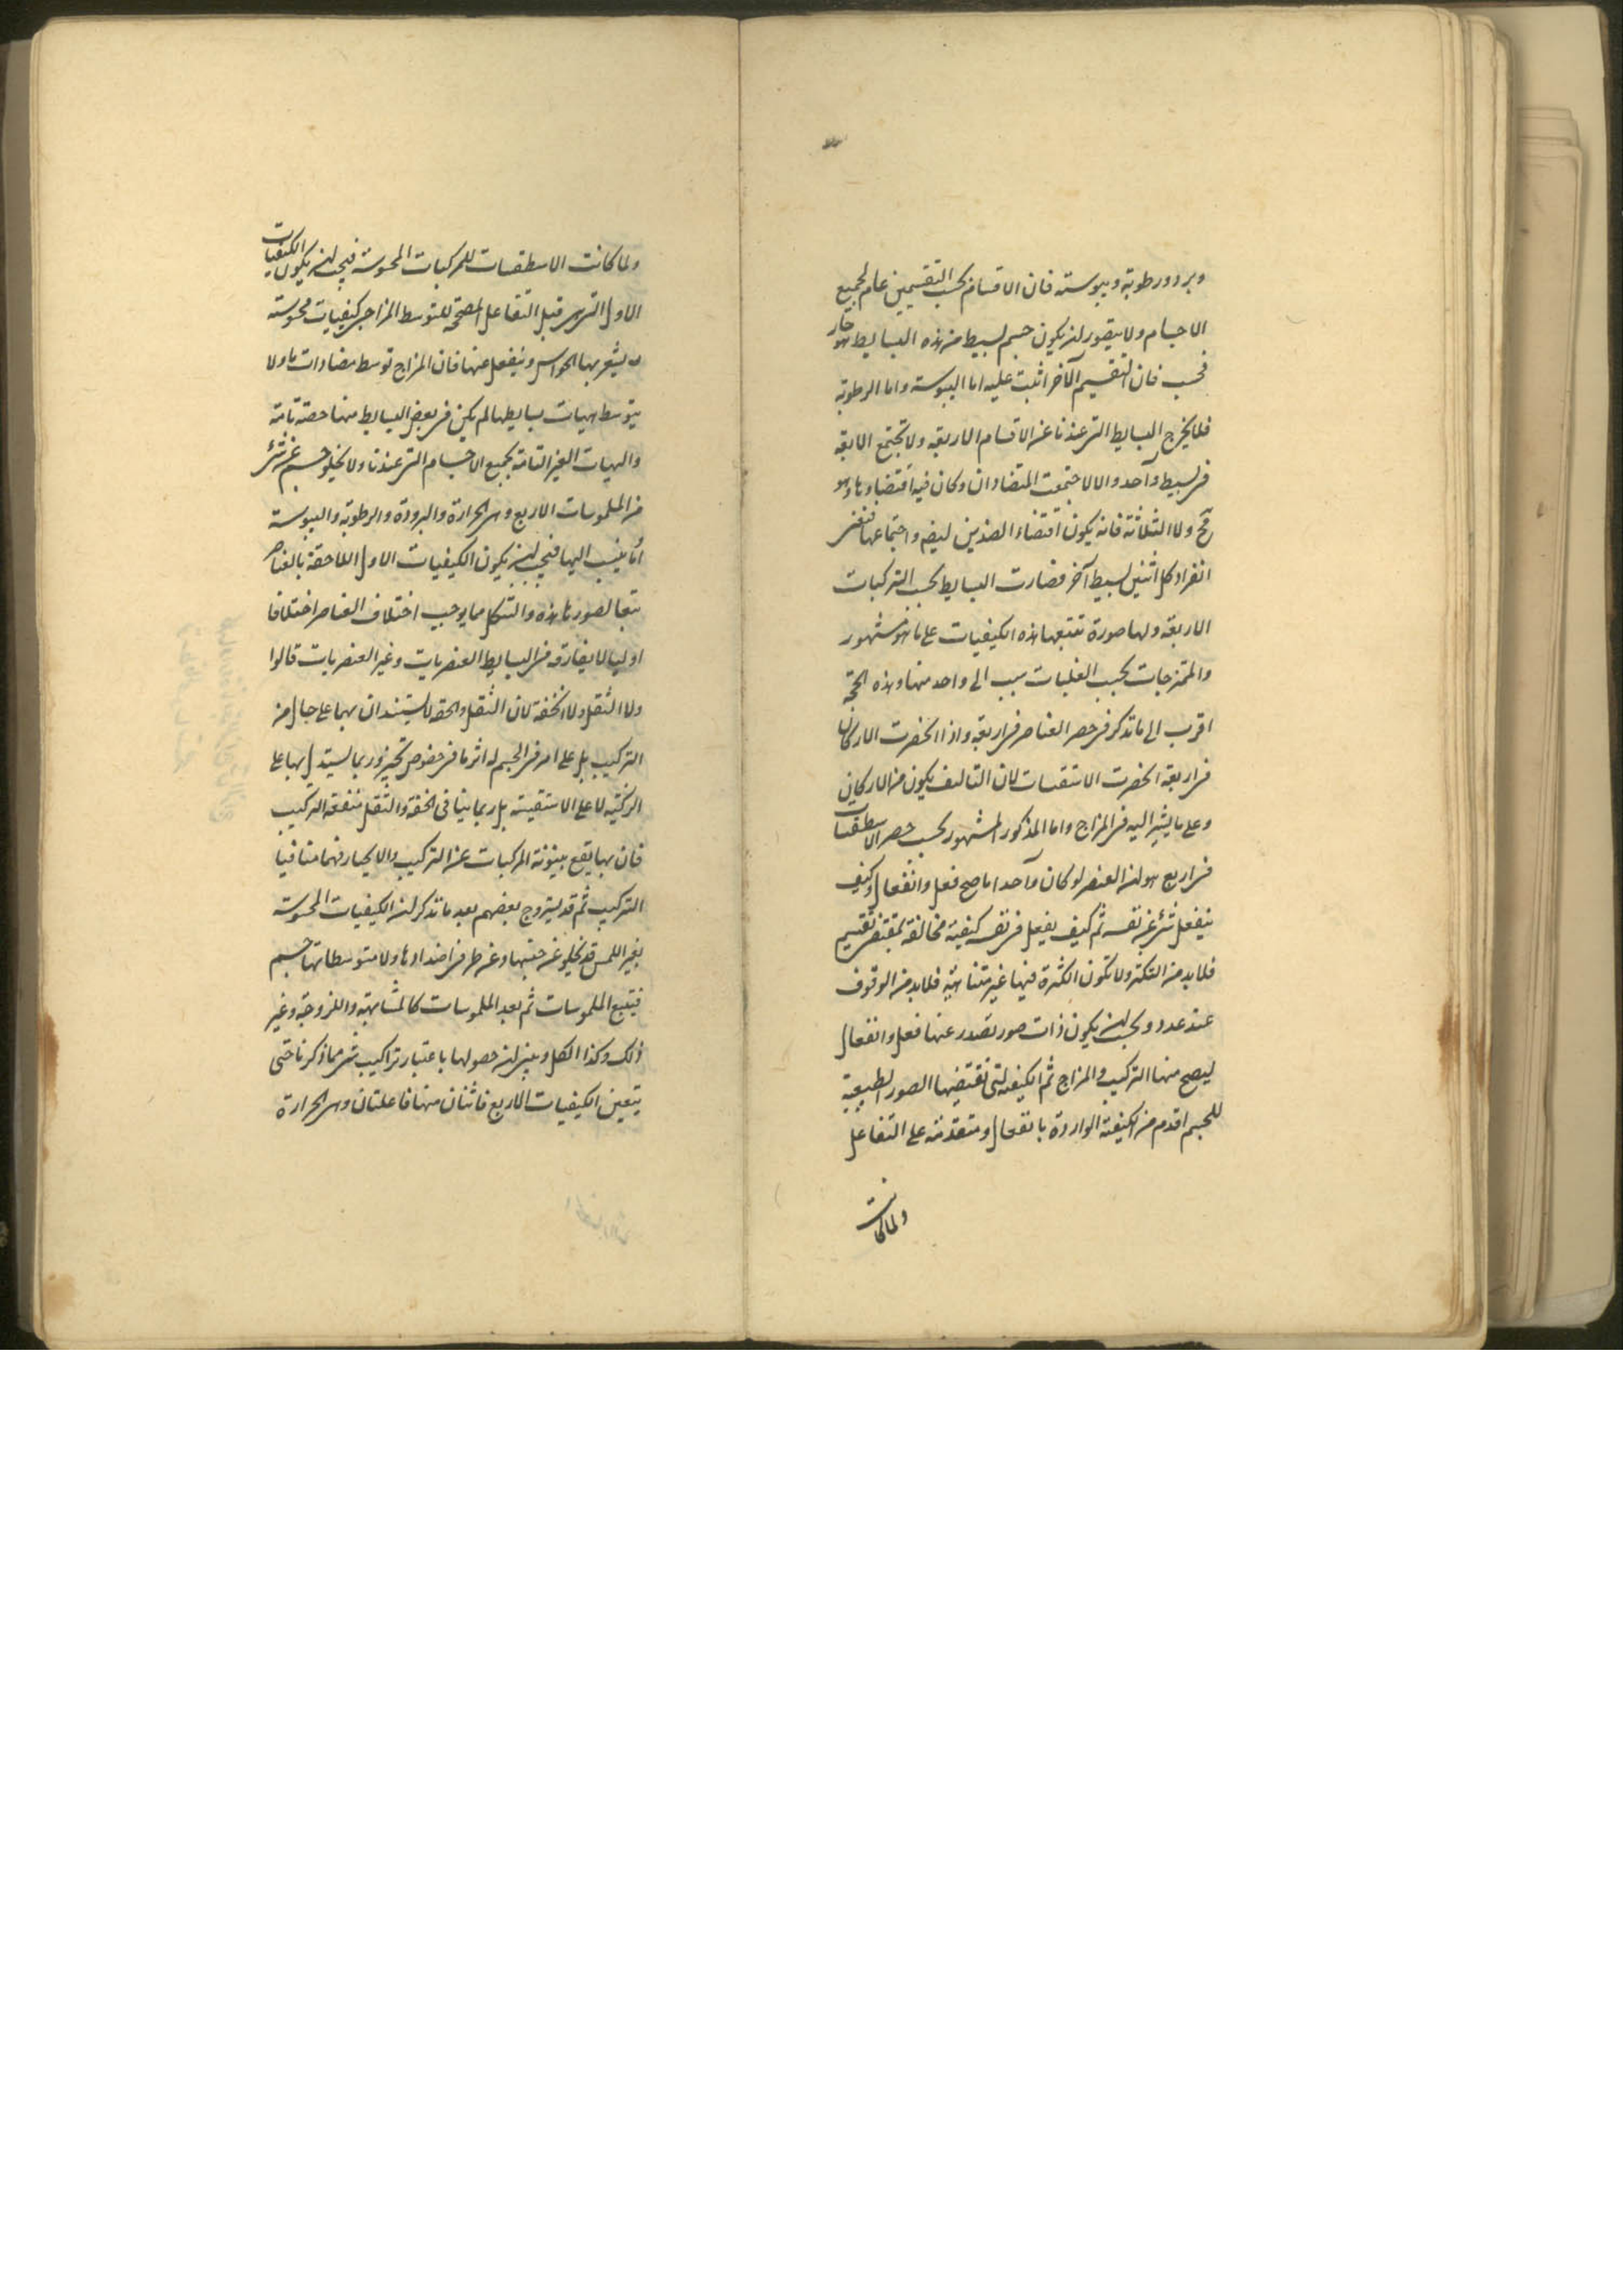 وبرد ورطوبة ويبوسة فان الاقسام بحسب التقسيمين عام لجميع
الاجسام ولا يتصور ان يكون جسم بسيط من هذه البسايط هو حار
فحسب فان التقسيم الآخر اثبت عليه اما اليبوسة واما الرطوبة
فلا يخرج البسايط التى عندنا عن الاقسام الاربعة ولا تجتمع الاربعة
فى بسيط واحد والا لاجتمعت المتضادان وكان فيه اقتضاؤهما وهو
مح ولا الثلاثة فانه يكون اقتضاء الضدين ايضا واجتماعهما
انفراد كل اثنين لبسيط آخر فصارت البسايط بحسب التركيبات
الاربعة ولها صورة تتبعها هذه الكيفيات على ما هو مشهور
والممتزجات بحسب الغلبات الى واحد منها وهذه الحجة
اقرب الى ما تذكر فى حصر العناصر فى اربعة واذا انحصرت الاركان
فى اربعة انحصرت الاستقسات لان التاليف يكون من الاركان
وعلى ما يشير اليه فى المزاج واما المذكور المشهور بحسب حصر الاسطقسات
فى اربع هو ان العنصر لو كان واحدا ما صح فعل وانفعال وكيف
ينفعل شئ عن نفسه ثم كيف يفعل فى نفسه كيفية مخالفة لمقتضى
فلا بد من التكثر ولا تكون الكثرة فيها غير متناهية فلا بد من الوقوف
عند عدد ويجب ان يكون ذات صور تصدر عنها فعل وانفعال
ليصح منها التركيب والمزاج ثم الكيفية التى تقتضيها الصور الطبيعية
للجسم اقدم من الكيفية الواردة بانفعال ومتقدمة على التفاعل
ولما كانت
ولما كانت الاسطقسات للمركبات المحسوسة فيجب ان يكون الكيفيات
الاول التى هى قبل التفاعل المصححة للتوسط المزاجى كيفيات محسوسة
يشعر بها الحواس وينفعل عنها فان المزاج توسط مضادات ما ولا
يتوسط هيات بسايطها لم يكن فى بعض البسايط منها حصة تامة
والهيات الغير التامة بجميع الاجسام التى عندنا ولا يخلو جسم عن شئ
من الملموسات الاربع وهى الحرارة والبرودة والرطوبة واليبوسة
او ما ينسب اليها فيجب ان يكون الكيفيات الاول اللاحقة بالعناصر
تبعا لصورها هذه والشكل مما يوجب اختلاف العناصر اختلافا
اوليا لا يفارقه من البسايط العنصريات وغير العنصريات قالوا
ولا الثقل ولا الخفة لان الثقل والخفة لا يستندان بهما على حال من
التركيب بل على امر فى الجسم له اثر ما فى خصوص تحيز وربما يستدل بها على
الركنية لا على الاستقسية بل ربما ينافى الخفة والثقل منفعة التركيب
فان بها يقع بينونة المركبات عن التركيب والانحياز فهما منافيا
التركيب ثم قد يتروج بعضهم بعد ما تذكر ان الكيفيات المحسوسة
بغير اللمس قد يخلو عن جنسها وعن طرفى اضدادها ولا متوسطاتها جسم
فيتتبع الملموسات ثم بعد الملموسات كالمشابهة واللزوجة وغير
ذلك وكذا الكل ويبين ان حصولها باعتبار تراكيب شئ مما ذكرنا حتى
يتعين الكيفيات الاربع فاثنان منها فاعلتان وهى الحرارة